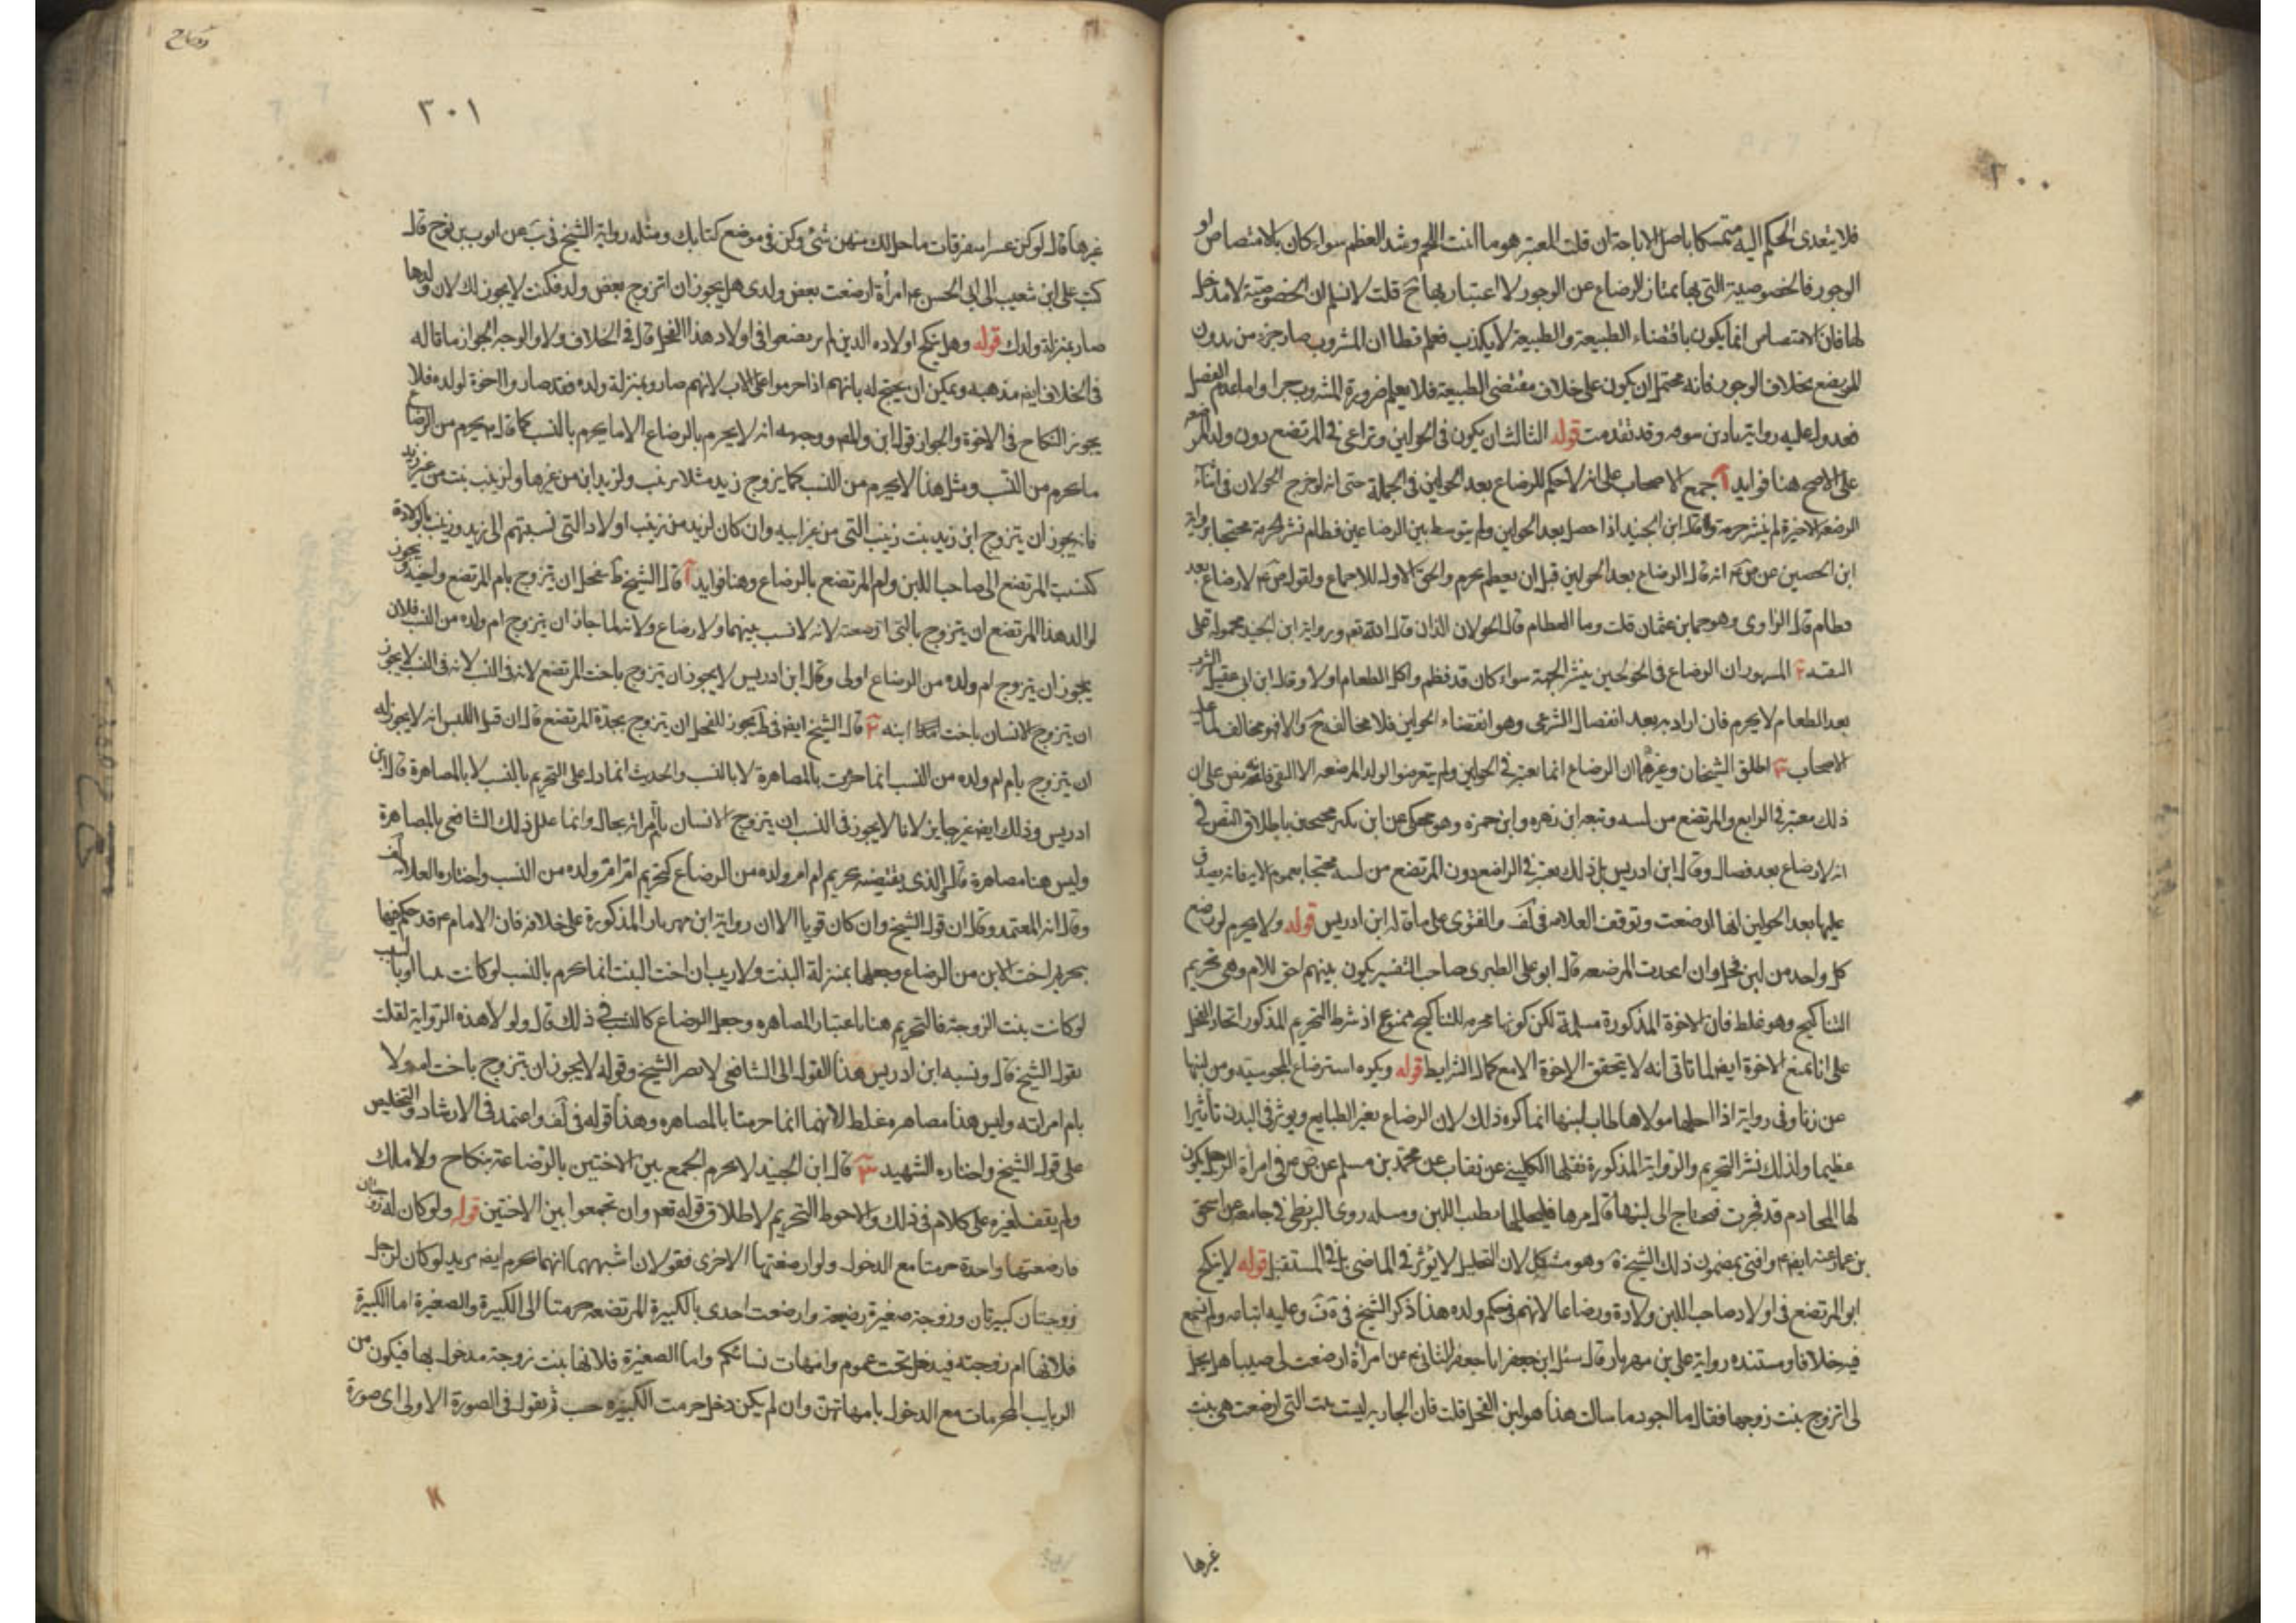 ٢٠٠
فلا يتعدى الحكم اليه متمسكا باصل الاباحة ان قلت المعتبر هو ما انبت اللحم وشد العظم سواء كان بالامتصاص او
الوجور فالخصوصية التى بها يمتاز الرضاع عن الوجور لا اعتبار بها ح قلت لا نسلم ان الخصوصية لا مدخل
لها فان الامتصاص انما يكون باقتضاء الطبيعة والطبيعة لا يكذب فعلم قطعا ان المشروب صار جزء من بدون
للمرتضع بخلاف الوجور فانه محتمل ان يكون على خلاف مقتضى الطبيعة فلا يعلم ضرورة المشروب جزا واما عدم الفصل
فيدل عليه رواية زياد بن سوقه وقد تقدمت قوله الثالث ان يكون فى الحولين وتراعى فى المرتضع دون ولد المرضعه
على الاصح هنا فوايد آ اجمع الاصحاب على انه لا حكم للرضاع بعد الحولين فى الجملة حتى انه لو خرج الحولان فى اثناء
الرضعة الاخيرة لم ينشر حرمة وقال ابن الجنيد اذا حصل بعد الحولين ولم يتوسط بين الرضاعين فطام نشر الحرمة محتجا برواية
ابن الحسين عن ص ع انه قال الرضاع بعد الحولين قبل ان يعطم يحرم والحق الاول للاجماع ولقوله ص ع لا رضاع بعد
فطام قال الراوى وهو حماد بن عثمان قلت وما الفطام قال الحولان الذان قال الله تع ورواية ابن الجنيد محمولة على
التقيه ٢ المشهور ان الرضاع فى الحولين ينشر الحرمة سواء كان قد فطم واكل الطعام او لا وقال ابن ابى عقيل الشرب
بعد الطعام لا يحرم فان اراد به بعد انفصال الشرعى وهو انقضاء الحولين فلا مخالف ح والا فهو مخالف لما عليه
الاصحاب ٣ اطلق الشيخان وغيرهما ان الرضاع انما يعتبر فى الحولين ولم يتعرضوا لولد المرضعه الا التقى فانه نص على ان
ذلك معتبر فى الراضع والمرتضع من لبنه وتبعه ابن زهره وابن حمزه وهو محكى عن ابن بكير محتجين باطلاق النص فى
انه لا رضاع بعد فصال وقال ابن ادريس بل ذلك يعتبر فى الراضع دون المرتضع من لبنه محتجا بعموم الاية فانه يصدق
عليها بعد الحولين انها ارضعت وتوقف العلامه فى لف والفتوى على ما قاله ابن ادريس قوله ولا يحرم لو رضع
كل واحد من لبن فحل وان اتحدت المرضعه قال ابو على الطبرى صاحب التفسير يكون بينهم اخوة للام وهى تحريم
التناكح وهو غلط فان الاخوة المذكورة مسلمة لكن كونها محرمه للتناكح ممنوع اذ شرط التحريم المذكور اتحاد الفحل
على انا نمنع الاخوة ايضا لما تاتى انه لا يتحقق الاخوة الا مع كمال الشرايط قوله ويكره استرضاع المجوسيه ومن لبنها
عن زنا وفى رواية اذا احلها مولاها طاب لبنها انما كره ذلك لان الرضاع يغير الطبايع ويوثر فى البدن تأثيرا
عظيما ولذلك نشر التحريم والرواية المذكورة نقلها الكلينى عن محمد بن مسلم عن ص ع فى امرأة الرجل يكون
لها الخادم قد فجرت فيحتاج الى لبنها قال مرها فليحللها يطب اللبن ومثله روى البزنطى فى جامعه عن اسحق
بن عمار عنه ايضا ع وافتى بمضمون ذلك الشيخ ره وهو مشكل لان التحليل لا يؤثر فى الماضى بل فى المستقبل قوله لا ينكح
ابو المرتضع فى اولاد صاحب اللبن ولادة ورضاعا لانهم فى حكم ولده هذا ذكر الشيخ فى يه وف وعليه اتباعه ولم نسمع
فيه خلافا ومستنده رواية على بن مهزيار قال سئل ابن جعفر ابا جعفر الثانى ع عن امرأة ارضعت لى صبيا هل يحل
لى اتزوج بنت زوجها فقال ما اجود ما سالت هذا هو لبن الفحل قلت فان الجاريه ليست بنت التى ارضعت هى بنت
غيرها
٣٠١
غيرها قال لو كن عشرا متفرقات ما حل لك منهن شئ وكن فى موضع كتابك ومثله رواية الشيخ فى يب عن ايوب بن نوح قال
كتب على ابن شعيب الى ابى الحسن ع امرأة ارضعت بعض ولدى هل يجوز ان اتزوج بعض ولد فكتب لا يجوز لك لان ولدها
صار بمنزلة ولدك قوله وهل ينكح اولاده الذين لم يرضعوا فى اولاد هذا الفحل قال فى الخلاف لا والوجه الجواز ما قاله
فى الخلاف ايضا مذهبه ويمكن ان يحتج له بانهم اذا حرموا على الاب لانهم صاروا بمنزلة ولده فقد صاروا اخوة لولده فلا
يجوز النكاح فى الاخوة والجواز قوله ابن والمص ووجهه انه لا يحرم بالرضاع الا ما يحرم بالنسب كما قال ع يحرم من الرضاع
ما يحرم من النسب ومثل هذا لا يحرم من النسب كما يزوج زيد مثلا زينب ولزيد ابن من غيرها ولزينب بنت من غير زيد
فانه يجوز ان يتزوج ابن زيد بنت زينب التى من غير ابيه وان كان لزيد من زينب اولاد التى نسبتهم الى زيد وزينب بالولادة
كنسبت المرتضع الى صاحب اللبن وام المرتضع بالرضاع وهنا فوايد آ قال الشيخ ط للفحل ان يتزوج بام المرتضع واخته ويجوز
لوالد هذا المرتضع ان يتزوج بالتى ارضعته لانه لا نسب بينهما ولا رضاع ولانه لما جاز ان يتزوج ام ولده من النسب فلان
يجوز ان يتزوج ام ولده من الرضاع اولى وقال ابن ادريس لا يجوز ان يتزوج باخت المرتضع لانه فى النسب لا يجوز
ان يتزوج الانسان باخت ابنه ٢ قال الشيخ ايضا فى ط يجوز للفحل ان يتزوج بجدة المرتضع قال ان قيل اليس انه لا يجوز له
ان يتزوج بام ام ولده من النسب انما حرمت بالمصاهرة لا بالنسب والحديث انما دل على التحريم بالنسب لا بالمصاهرة قال ابن
ادريس وذلك ايضا غير جايز لانا لا يجوز فى النسب ان يتزوج الانسان بام امراته بحال وانما علل ذلك الشافعى بالمصاهرة
وليس هنا مصاهرة قال والذى يقتضيه تحريم ام ام ولده من الرضاع كتحريم ام ام ولده من النسب واختاره العلامه لف
وقال انه المعتمد وقال ان قول الشيخ وان كان قويا الا ان رواية ابن مهزيار المذكورة على خلافه فان الامام ع قد حكم فيها
بتحريم اخت الابن من الرضاع وجعلها بمنزلة البنت ولا ريب ان اخت البنت انما تحرم بالنسب لو كانت بنتا او بالسبب
لو كانت بنت الزوجة فالتحريم هنا باعتبار المصاهره وجعل الرضاع كالنسب فى ذلك قال ولو لا هذه الرواية لقلت
بقول الشيخ قال ونسبه ابن ادريس هذا القول الى الشافعى لا نص الشيخ وقوله لا يجوز ان يتزوج باخت ابنه ولا
بام امراته وليس هنا مصاهره غلط لانهما انما حرمتا بالمصاهره وهذا قوله فى لف واعتمد فى الارشاد والتخليص
على قول الشيخ واختاره الشهيد ٣ قال ابن الجنيد لا يحرم الجمع بين الاختين بالرضاعة بنكاح ولا ملك
ولم يقف لغيره على كلام فى ذلك والاحوط التحريم لاطلاق قوله تع وان تجمعوا بين الاختين قوله ولو كان له زوجتان
فارضعتها واحدة حرمتا مع الدخول ولو ارضعتها الاخرى فقولان اشبههما انهما تحرم ايضا يريد لو كان لرجل
زوجتان كبيرتان وزوجة صغيرة رضيعة وارضعت احدى بالكبيرة المرتضعه حرمتا الى الكبيرة والصغيرة اما الكبيرة
فلانها ام زوجته فيدخل تحت عموم وامهات نسائكم واما الصغيرة فلانها بنت زوجة مدخول بها فيكون من
الربايب المحرمات مع الدخول بامهاتهن وان لم يكن دخل حرمت الكبيره حسب ثم نقول فى الصورة الاولى اى صورة